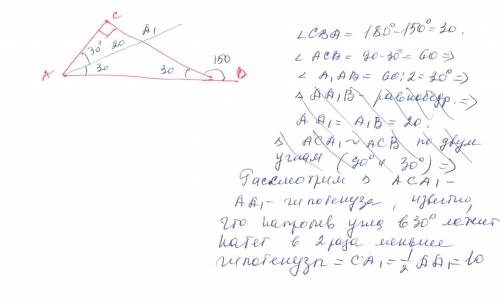 C
A₁
30°
20
150
A
30
30
B
∠CBA = 180° - 150° = 30.
∠ACB = 90 - 30° = 60 =>
∠A₁AB = 60:2 = 30° =>
△AA₁B - равнобедр. =>
AA₁ = A₁B = 20.
△ACA₁ ~ ACB по двум
углам (90° и 30°) =>
Рассмотрим △ ACA₁ -
AA₁ - гипотенуза, известно,
что напротив угла в 30° лежит
катет в 2 раза меньше
гипотенузы = CA₁ = ½ AA₁ = 10